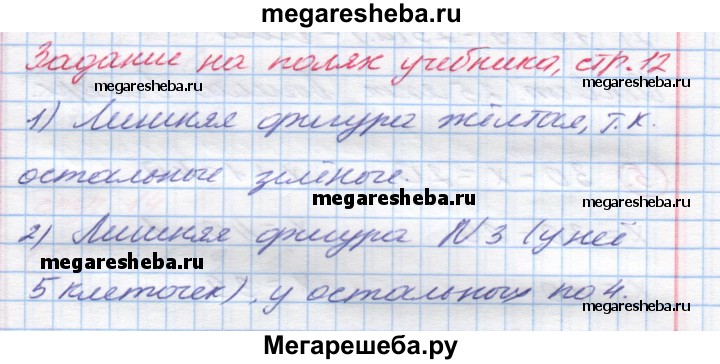 megaresheba.ru
Задание на полях учебника, стр. 12
megaresheba.ru
megaresheba.ru
1) Лишняя фигура жёлтая, т.к.
остальные зелёные.
megaresheba.ru
megaresheba.ru
2) Лишняя фигура N 3 (у неё
megaresheba.ru
5 клеточек), у остальных по 4.
megaresheba.ru
Мегарешеба.ру